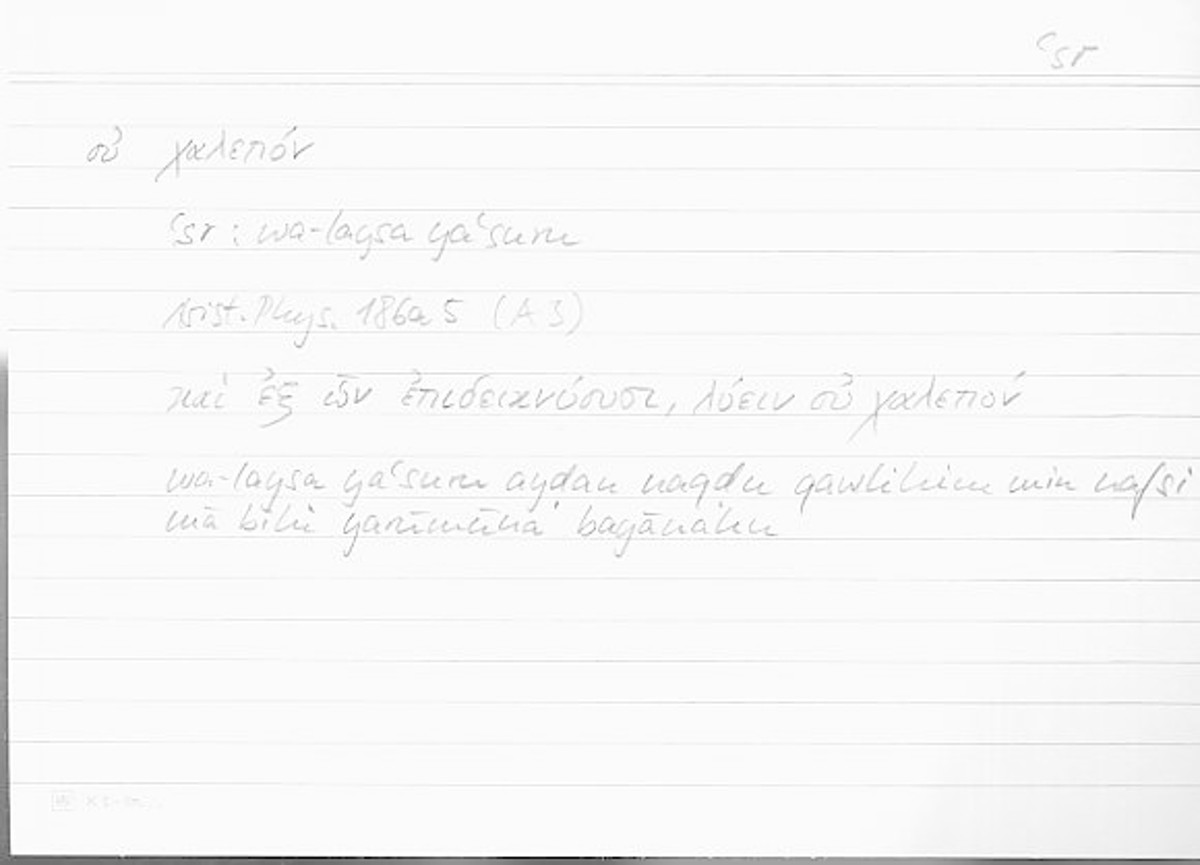 ʿsr
οὐ χαλεπόν
ʿsr : wa-laysa yaʿsuru
Arist. Phys. 186a 5 (A 3)
καὶ ἐξ ὧν ἐπιδεικνύουσι, λύειν οὐ χαλεπόν
wa-laysa yaʿsuru aydan naqdu qawlihim min nafsi
mā bihī yarūmūna bayānahu